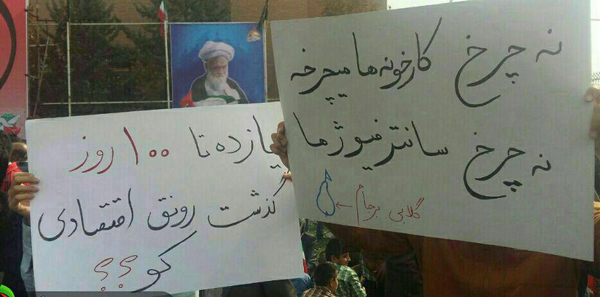 نه چرخ کارخونه ها میچرخه
نه چرخ سانتریفیوژ ما
گلابی برجام
یازده تا ۱۰۰ روز
گذشت رونق اقتصادی
کو؟؟